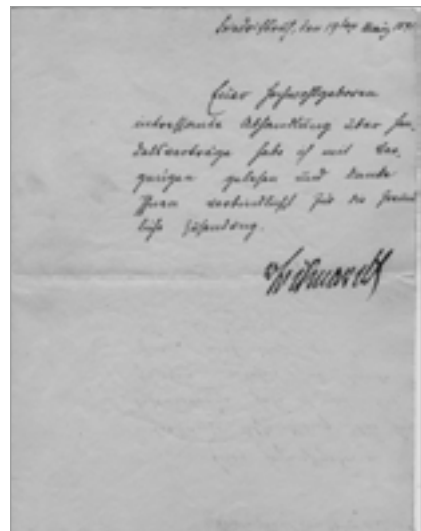 Friedrichsruh, den 19ten März 1891
Euer Hochwohlgeboren
interessante Abhandlung über Han-
delsverträge habe ich mit Ver-
gnügen gelesen und danke
Ihnen verbindlichst für die freund-
liche Zusendung.
v Bismarck